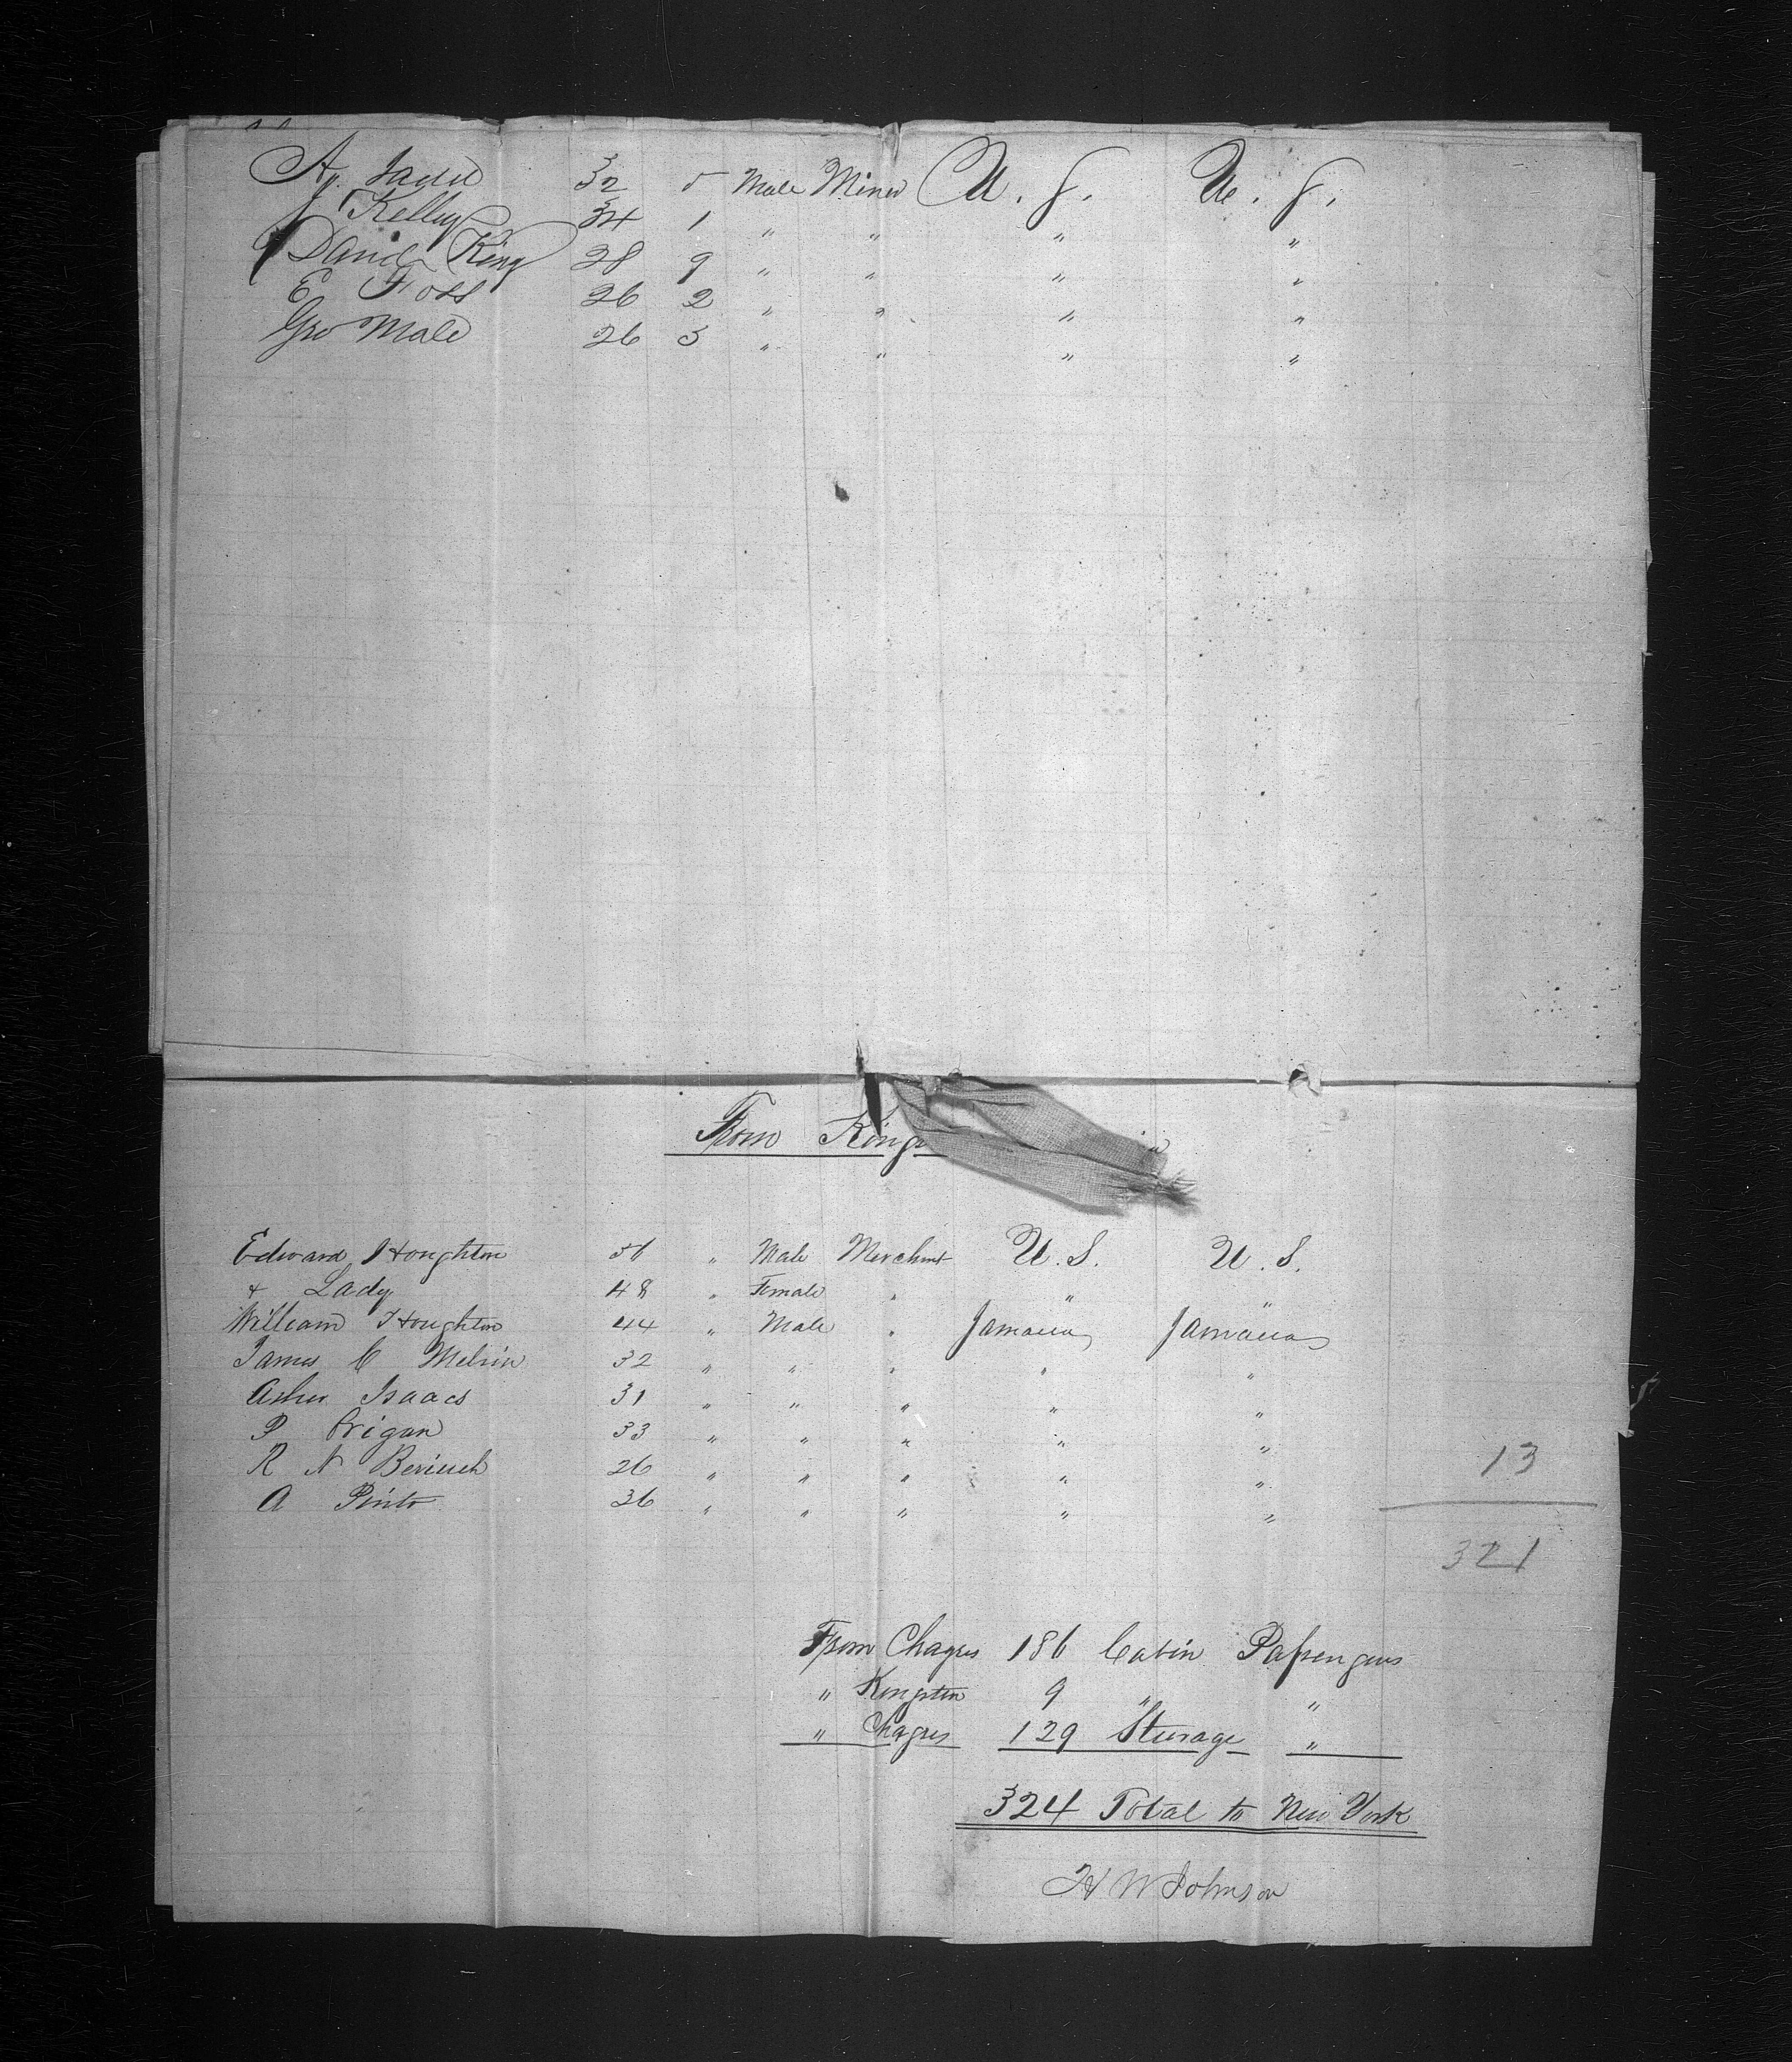 A. 32 5 Male Miner U. S. U. S.
J Kelley 34 1 " " " "
David King 28 9 " " " "
E Foss 26 2 " " " "
Geo Male 26 3 " " " "
From
Edward Houghton 56 " Male Merchant U. S. U. S.
& Lady 48 " Female " " "
William Houghton 44 " Male " Jamaica Jamaica
James C Melvin 32 " " " " "
Asher Isaacs 31 " " " " "
P Brigan 33 " " " " "
R N 26 " " " " "
A Pinto 36 " " " " "
13
321
From Chagres 186 Cabin Passengers
" Kingston 9 " "
" Chagres 129 Steerage "
324 Total to New York
H W Johnson